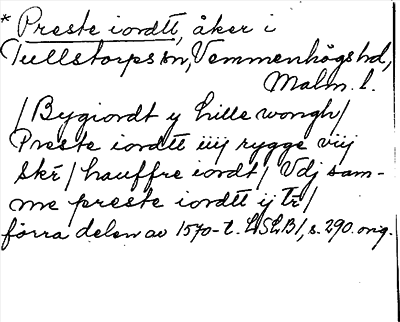 * Preste iordtt, åker i
Tullstorps sn, Vemmenhögs hd,
Malm. l.
/Bygiordt y hille wongh/
Preste iordtt iiij rygge viij
skr / hauffre iordt / Vdj sam-
me preste iordtt ij tr /
förra delen av 1570-t. LSLB1, s. 290. orig.